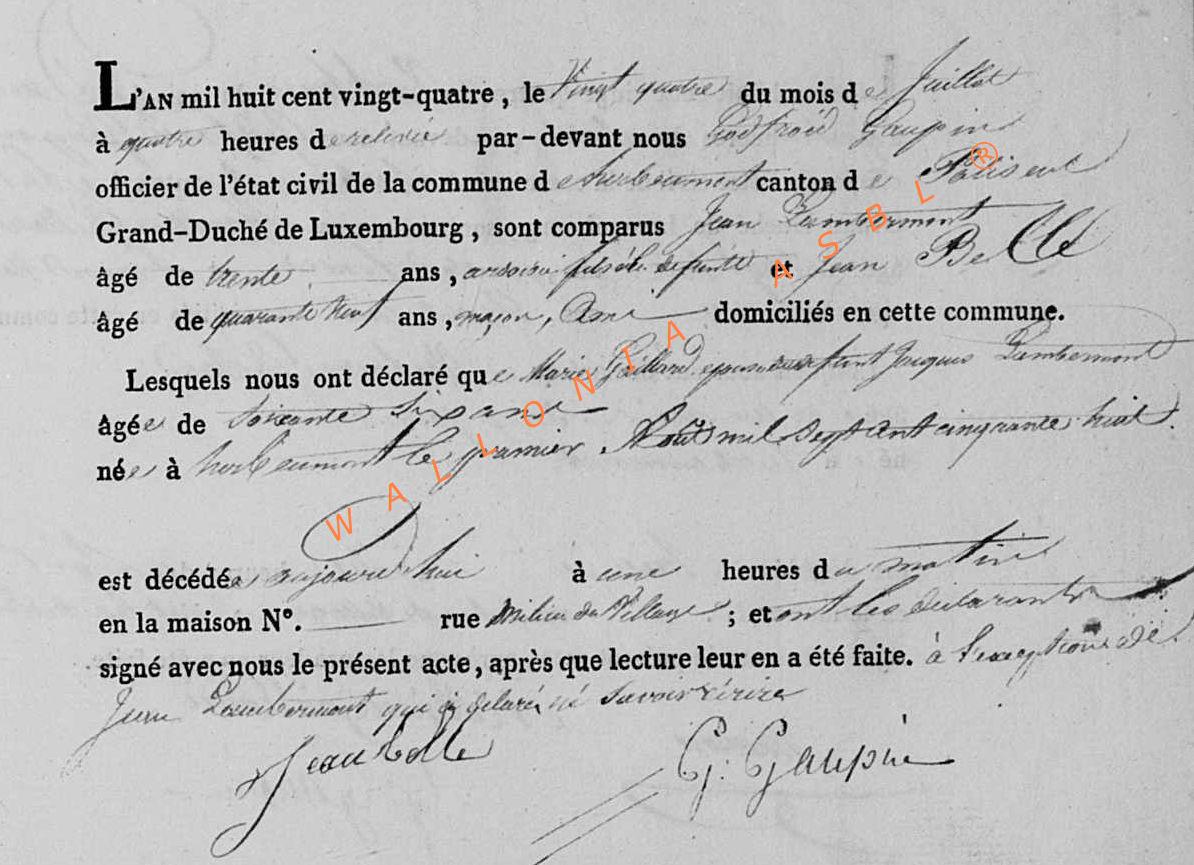 L'AN mil huit cent vingt-quatre, le Vingt quatre du mois de Juillet
à quatre heures de relevée par-devant nous Godfroid Gaupin
officier de l'état civil de la commune d'herbeumont canton de Paliseul
Grand-Duché de Luxembourg, sont comparus Jean Lambermont
âgé de trente ans, fils de defunte et Jean Bolle
âgé de quarante neuf ans, maçon, Ami domiciliés en cette commune.
Lesquels nous ont déclaré que Marie Gaillard epouse Jacques Lambermont
âgée de soixante six ans
née à herbeumont le premier Août mil sept cent cinquante huit.
est décédée aujourd'hui à une heures du matin
en la maison N°. rue Milieu du Village ; et ont les declarants
signé avec nous le présent acte, après que lecture leur en a été faite. à l'exception de
Jean Lambermont qui a declaré ne savoir écrire
Jean bolle G. Gaupin
WALLONIA ASBL ®